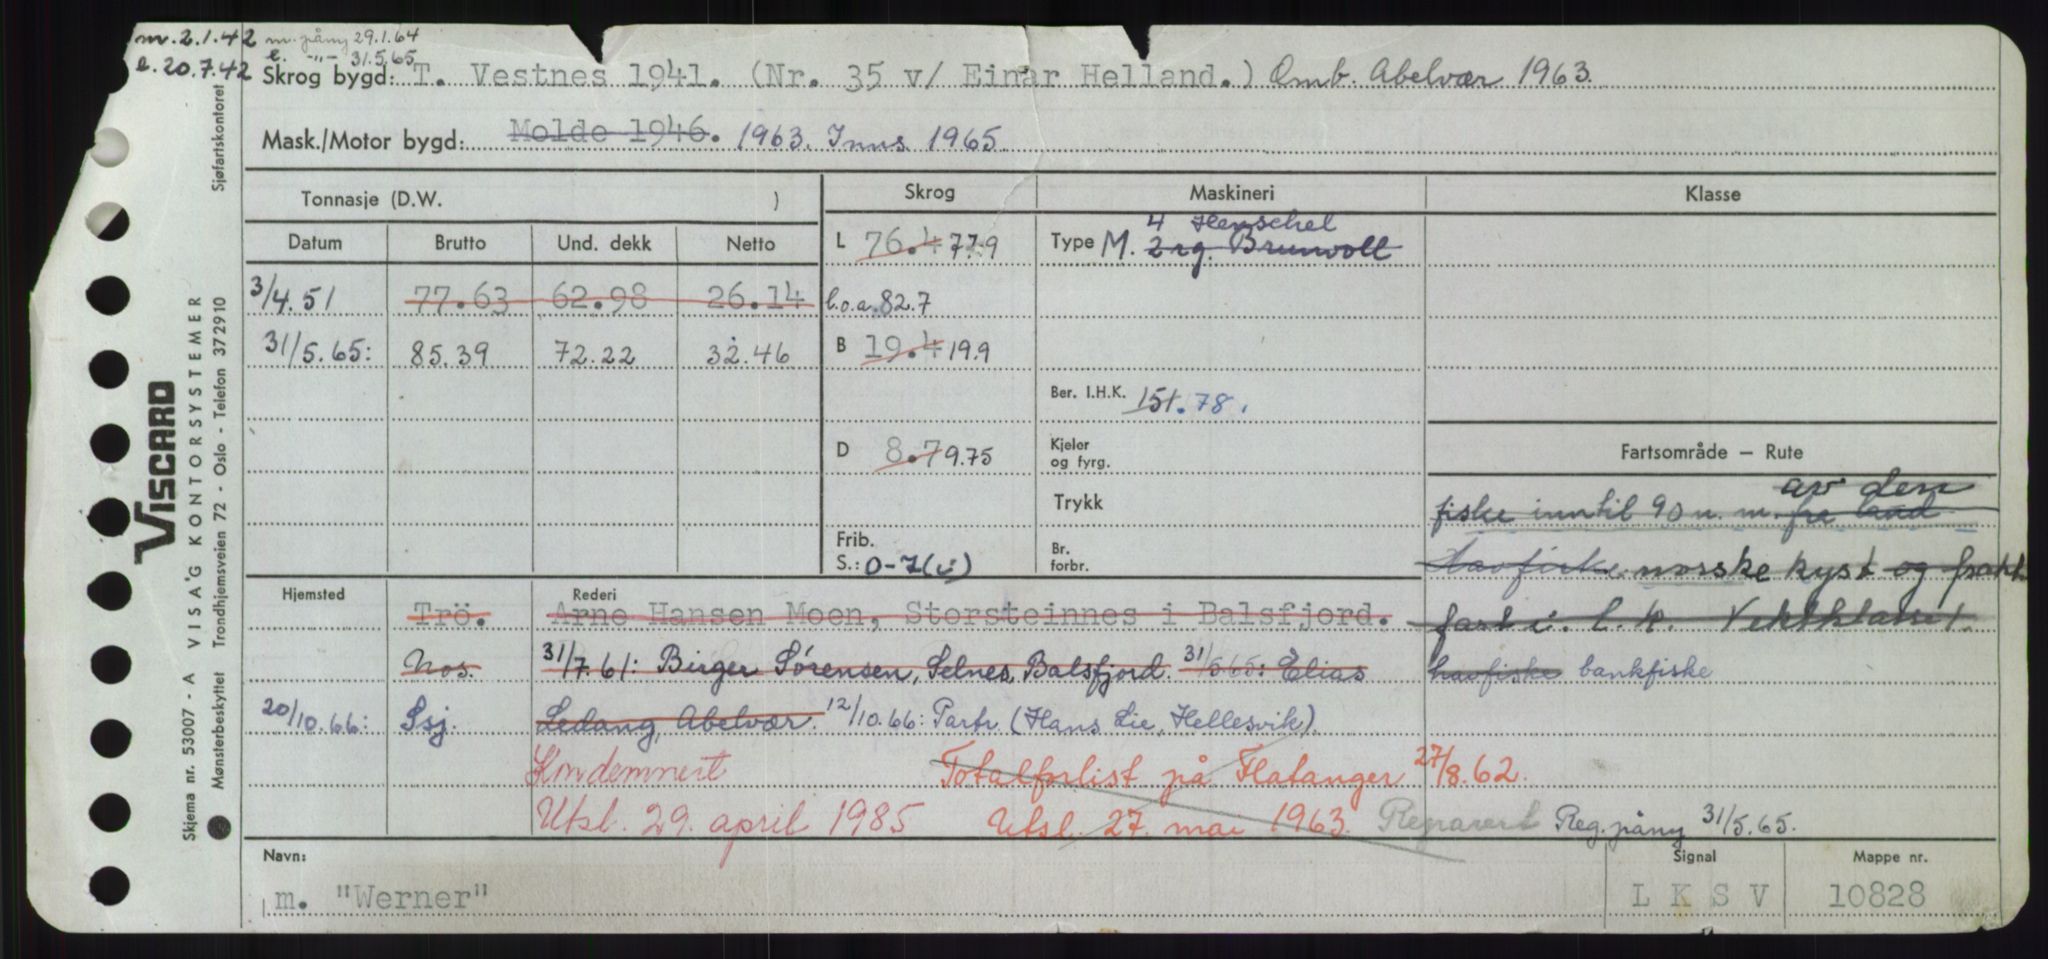 m. 2.1.42 m. påny 29.1.64
e. 20.7.42 e. -"- 31.5.65
Skrog bygd: T. Vestnes 1941. (Nr. 35 v/ Einar Helland.) Omb. Abelvær 1963.
Mask./Motor bygd: Molde 1946. 1963. Inns. 1965
Tonnasje (D.W. )
Skrog
Maskineri
Klasse
Datum Brutto Und. dekk Netto
3/4.51 77.63 62.98 26.14
31/5.65: 85.39 72.22 32.46
L 76.4 77.9
l.o.a. 82.7
B 19.4 19.9
D 8.7 9.75
Frib.
S.: 0-7(i)
4 Henschel
Type M. 2 rg. Brunvoll
Ber. I.H.K. 151. 78.
Kjeler
og fyrg.
Trykk
Br.
forbr.
Fartsområde – Rute
av den
fiske inntil 90 n. m. fra land
Havfiske norske kyst og frakt
fart i. l. k. Vektklasse 1.
havfiske bankfiske
Hjemsted
Rederi
Trö. Arne Hansen Moen, Storsteinnes i Balsfjord.
Nos. 31/7.61: Birger Sørensen, Selnes, Balsfjord. 31/5 65: Elias
20/10.66: Ssj. Ledang, Abelvær. 12/10.66: Partr. (Hans Lie, Hellesvik).
Kondemnert Totalforlist på Flatanger 27/8.62.
Utsl. 29. april 1985 Utsl. 27. mai 1963. Reparert Reg. påny 31/5.65.
Navn:
m. "Werner"
Signal
LKSV
Mappe nr.
10828
Skjema nr. 53007 - A VISAG KONTORSYSTEMER
VISCARD
Mønsterbeskyttet Trondhjemsveien 72 - Oslo - Telefon 372910
Sjøfartskontoret